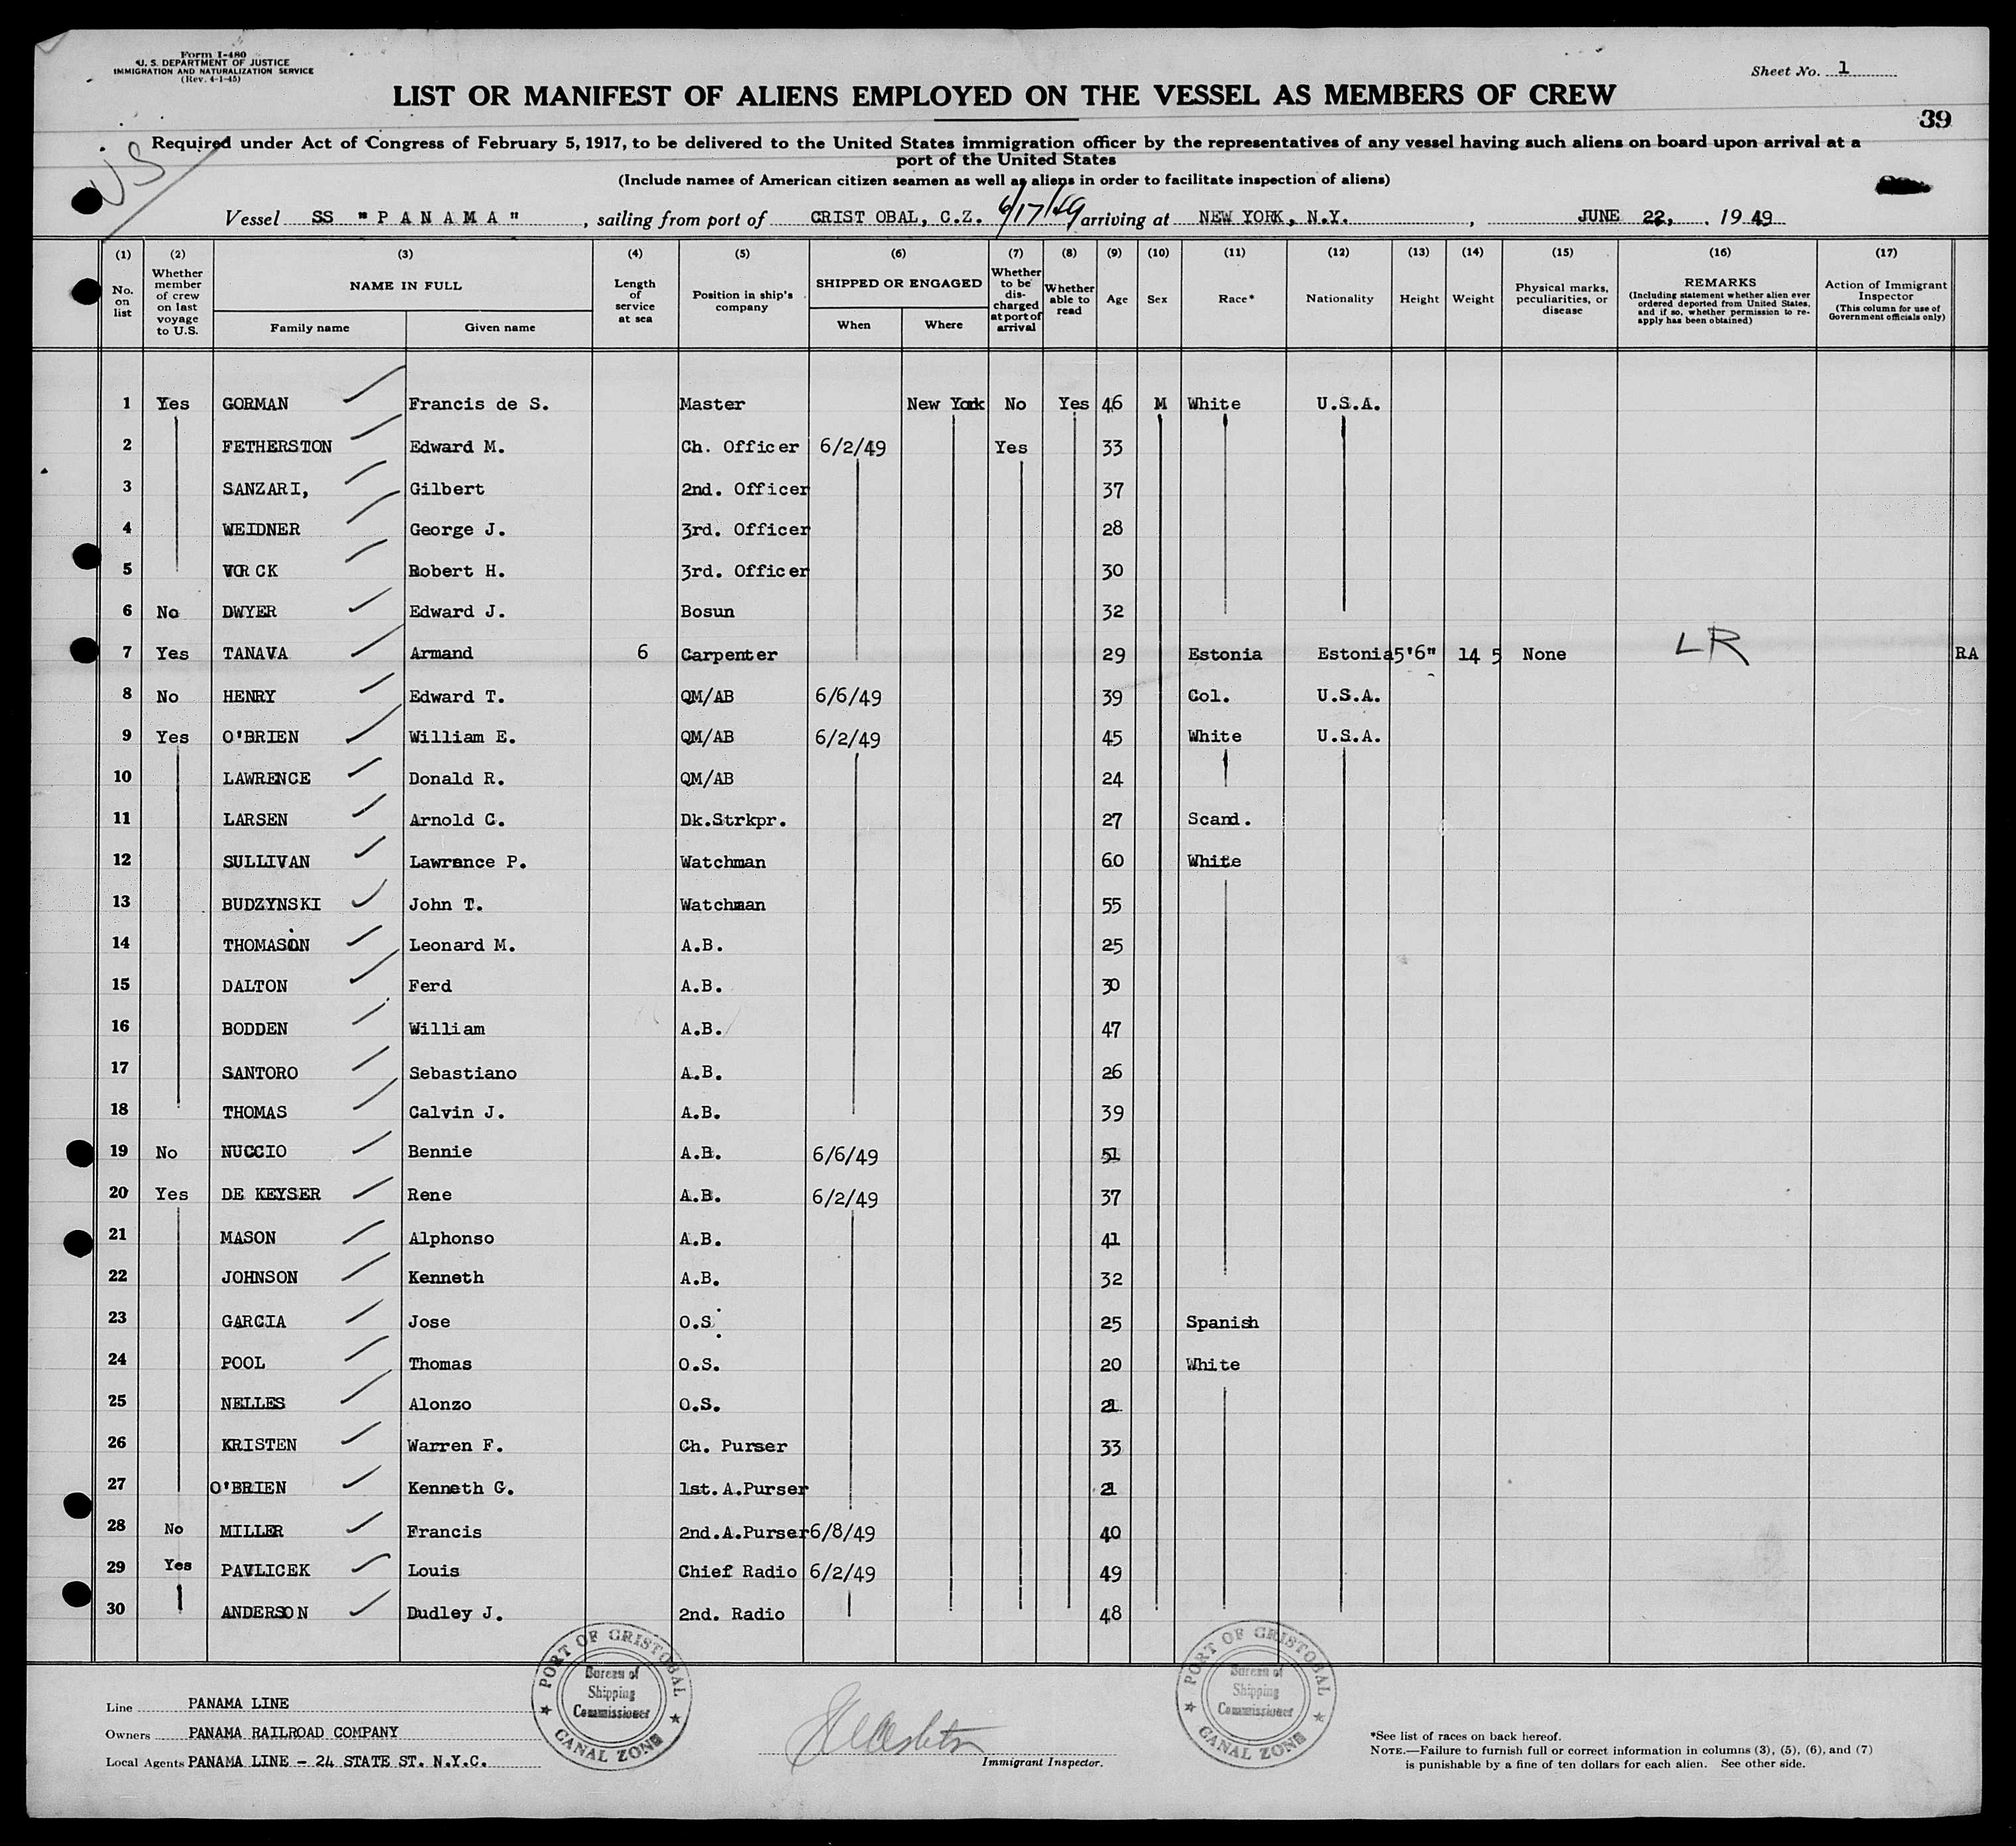 Form I-480
U. S. DEPARTMENT OF JUSTICE
IMMIGRATION AND NATURALIZATION SERVICE
(Rev. 4-1-45)
Sheet No. 1
LIST OR MANIFEST OF ALIENS EMPLOYED ON THE VESSEL AS MEMBERS OF CREW
39
US
Required under Act of Congress of February 5, 1917, to be delivered to the United States immigration officer by the representatives of any vessel having such aliens on board upon arrival at a
port of the United States
(Include names of American citizen seamen as well as aliens in order to facilitate inspection of aliens)
Vessel SS "P A N A M A" , sailing from port of CRIST OBAL, C.Z. 6/17/49 arriving at NEW YORK, N.Y. , JUNE 22, , 19 49
(1) (2) (3) (4) (5) (6) (7) (8) (9) (10) (11) (12) (13) (14) (15) (16) (17)
No. on list
Whether member of crew on last voyage to U.S.
NAME IN FULL
Family name Given name
Length of service at sea
Position in ship's company
SHIPPED OR ENGAGED
When Where
Whether to be discharged at port of arrival
Whether able to read
Age Sex Race* Nationality Height Weight
Physical marks, peculiarities, or disease
REMARKS
(Including statement whether alien ever ordered deported from United States, and if so, whether permission to reapply has been obtained)
Action of Immigrant Inspector
(This column for use of Government officials only)
1 Yes GORMAN Francis de S. Master New York No Yes 46 M White U.S.A.
2 FETHERSTON Edward M. Ch. Officer 6/2/49 Yes 33
3 SANZARI, Gilbert 2nd. Officer 37
4 WEIDNER George J. 3rd. Officer 28
5 VOR CK Robert H. 3rd. Officer 30
6 No DWYER Edward J. Bosun 32
7 Yes TANAVA Armand 6 Carpenter 29 Estonia Estonia 5'6" 14 5 None LR RA
8 No HENRY Edward T. QM/AB 6/6/49 39 Col. U.S.A.
9 Yes O'BRIEN William E. QM/AB 6/2/49 45 White U.S.A.
10 LAWRENCE Donald R. QM/AB 24
11 LARSEN Arnold C. Dk.Strkpr. 27 Scand.
12 SULLIVAN Lawrence P. Watchman 60 White
13 BUDZYNSKI John T. Watchman 55
14 THOMASON Leonard M. A.B. 25
15 DALTON Ferd A.B. 30
16 BODDEN William A.B. 47
17 SANTORO Sebastiano A.B. 26
18 THOMAS Calvin J. A.B. 39
19 No NUCCIO Bennie A.B. 6/6/49 51
20 Yes DE KEYSER Rene A.B. 6/2/49 37
21 MASON Alphonso A.B. 41
22 JOHNSON Kenneth A.B. 32
23 GARCIA Jose O.S. 25 Spanish
24 POOL Thomas O.S. 20 White
25 NELLES Alonzo O.S. 21
26 KRISTEN Warren F. Ch. Purser 33
27 O'BRIEN Kenneth G. 1st. A.Purser 21
28 No MILLER Francis 2nd.A.Purser 6/8/49 40
29 Yes PAVLICEK Louis Chief Radio 6/2/49 49
30 ANDERSON Dudley J. 2nd. Radio 48
PORT OF CRISTOBAL
Bureau of
Shipping
Commissioner
CANAL ZONE
PORT OF CRISTOBAL
Bureau of
Shipping
Commissioner
CANAL ZONE
Line PANAMA LINE
Owners PANAMA RAILROAD COMPANY
Local Agents PANAMA LINE - 24 STATE ST. N.Y.C.
Immigrant Inspector.
*See list of races on back hereof.
NOTE.—Failure to furnish full or correct information in columns (3), (5), (6), and (7)
is punishable by a fine of ten dollars for each alien. See other side.